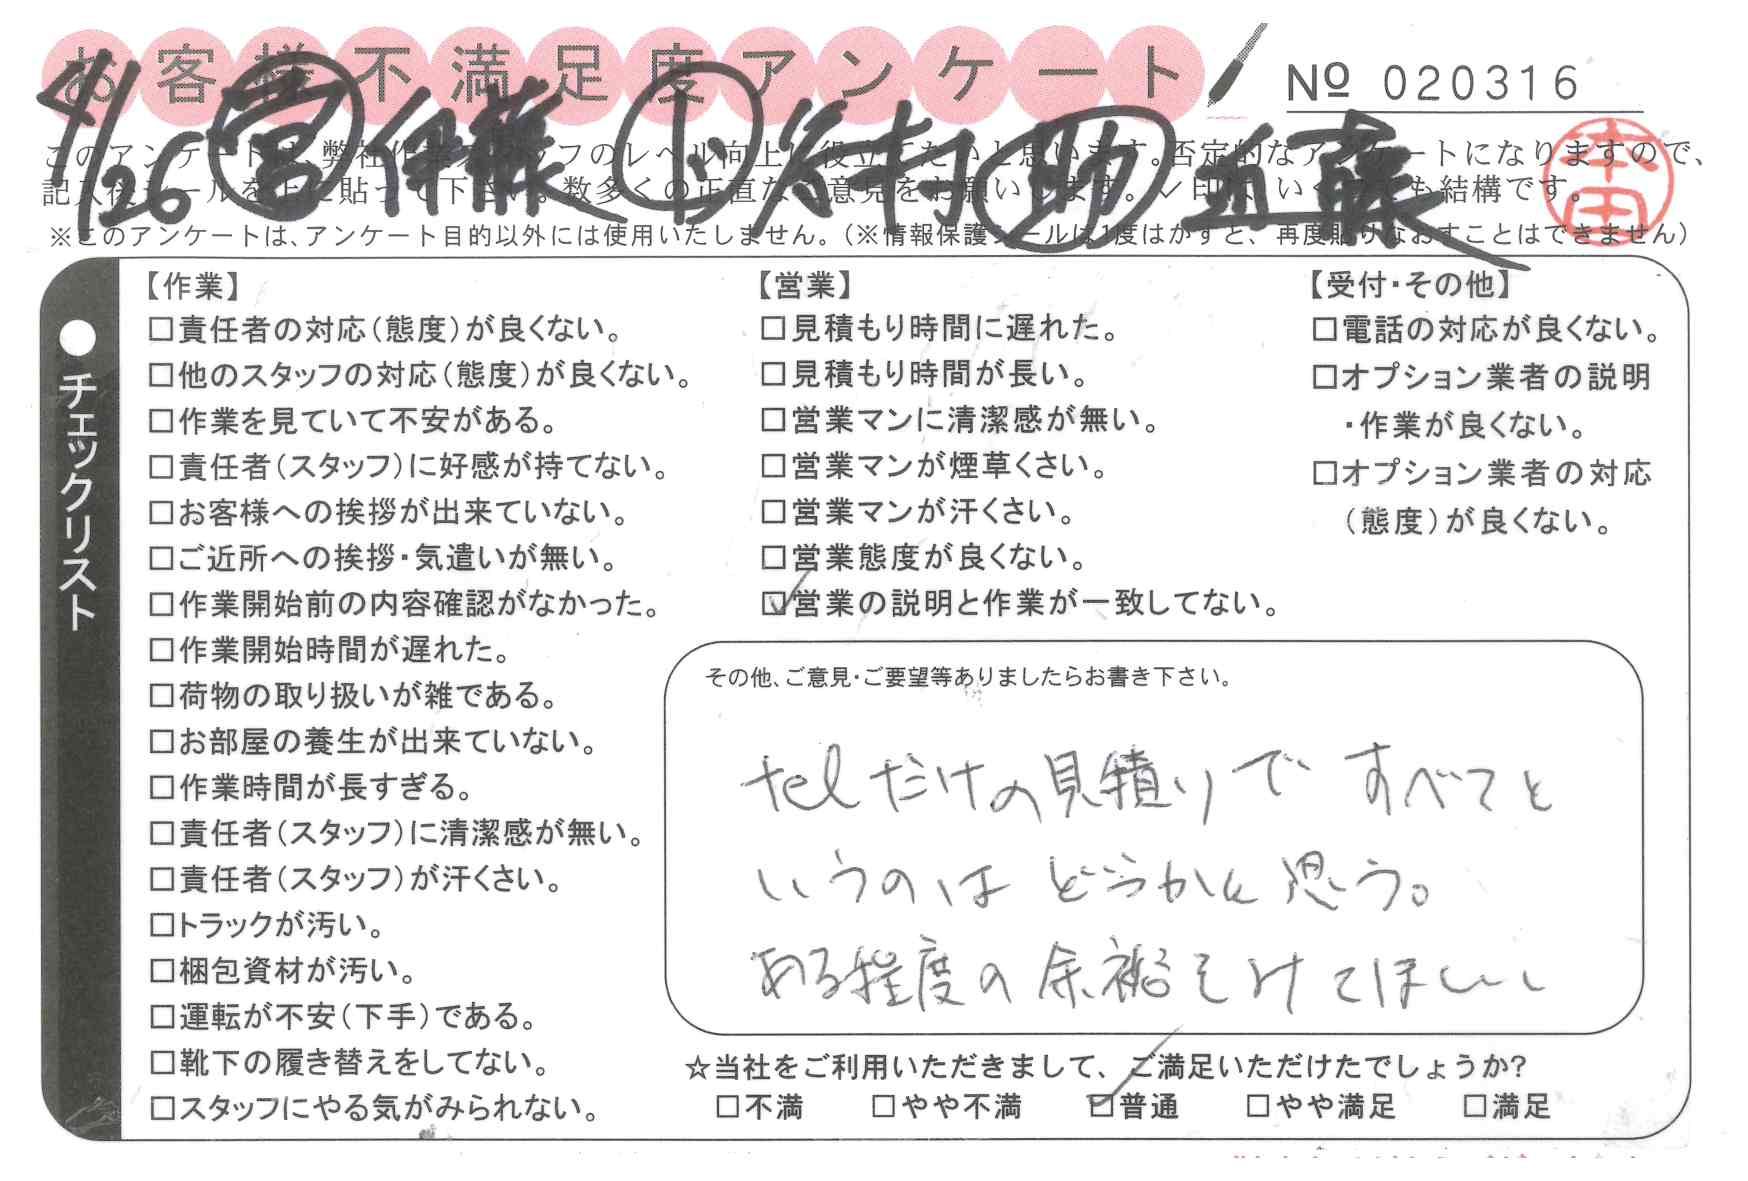 お客様不満足度アンケート
№ 020316
4/26 ㊢ 伊藤 ト 谷村 助 近藤
このアンケートは、弊社作業スタッフのレベル向上に役立てたいと思います。否定的なアンケートになりますので、
記入後シールを上に貼って下さい。数多くの正直なご意見をお願いします。✓印は、いくつでも結構です。
本田
※このアンケートは、アンケート目的以外には使用いたしません。(※情報保護シールは1度はがすと、再度貼りなおすことはできません)
●チェックリスト
【作業】
□責任者の対応(態度)が良くない。
□他のスタッフの対応(態度)が良くない。
□作業を見ていて不安がある。
□責任者(スタッフ)に好感が持てない。
□お客様への挨拶が出来ていない。
□ご近所への挨拶・気遣いが無い。
□作業開始前の内容確認がなかった。
□作業開始時間が遅れた。
□荷物の取り扱いが雑である。
□お部屋の養生が出来ていない。
□作業時間が長すぎる。
□責任者(スタッフ)に清潔感が無い。
□責任者(スタッフ)が汗くさい。
□トラックが汚い。
□梱包資材が汚い。
□運転が不安(下手)である。
□靴下の履き替えをしてない。
□スタッフにやる気がみられない。
【営業】
□見積もり時間に遅れた。
□見積もり時間が長い。
□営業マンに清潔感が無い。
□営業マンが煙草くさい。
□営業マンが汗くさい。
□営業態度が良くない。
☑営業の説明と作業が一致してない。
【受付・その他】
□電話の対応が良くない。
□オプション業者の説明
・作業が良くない。
□オプション業者の対応
(態度)が良くない。
その他、ご意見・ご要望等ありましたらお書き下さい。
telだけの見積りで すべてと
いうのは どうかと思う。
ある程度の余裕をみてほしい
☆当社をご利用いただきまして、ご満足いただけたでしょうか?
□不満 □やや不満 ☑普通 □やや満足 □満足